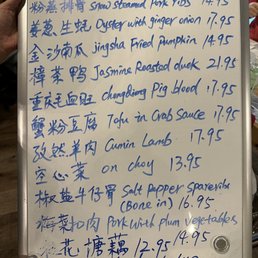 粉蒸排骨 Snow steamed Pork ribs 14.95
姜葱生蚝 Oyster with ginger onion 17.95
金沙南瓜 jingsha Fried pumpkin 14.95
樟茶鸭 Jasmine Roasted duck 21.95
重庆毛血旺 chongBing Pig blood 17.95
蟹粉豆腐 Tofu in Crab Sauce 17.95
孜然羊肉 Cumin Lamb 17.95
空心菜 on choy 13.95
椒盐牛仔骨 Salt Pepper Spareribs
(Bone in) 16.95
梅菜扣肉 Pork with plum vegetables
14.95
花塘藕 12.95